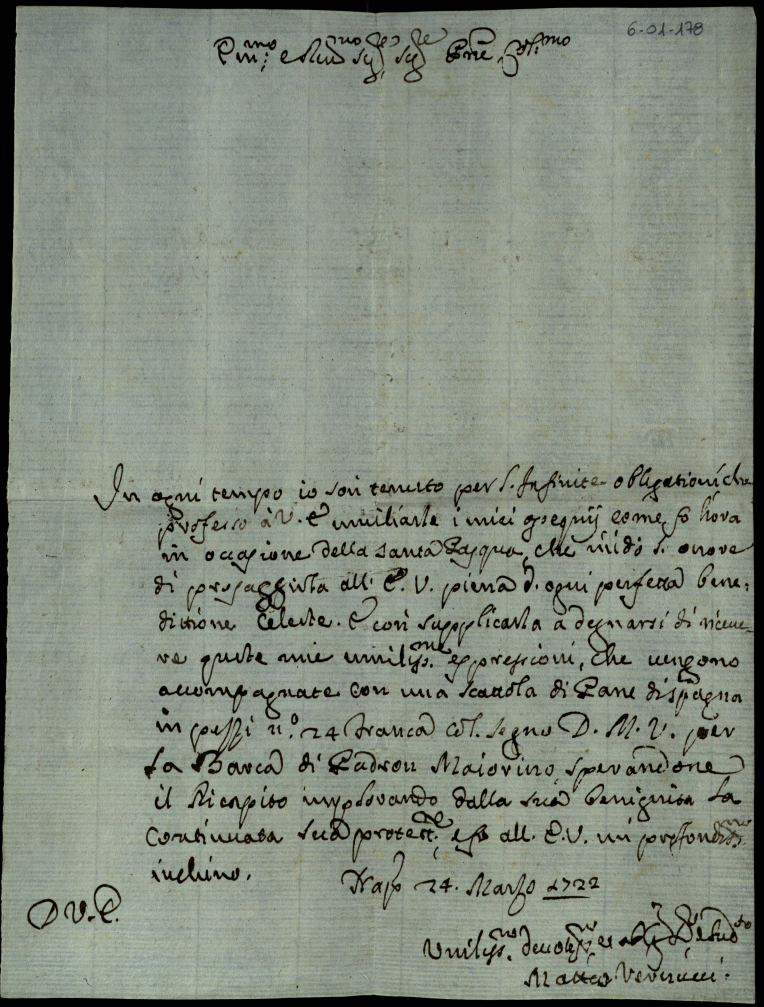 6-01-178
Em.mo e Rev.mo Sig.re Sig.re Prne
In ogni tempo io son tenuto per l'infinite obligationi che
professo à V. E. umiliarle i miei ossequij come fo hora
in occasione della santa Pasqua, che mi dò l'onore
di presaggirla all' E. V. piena d'ogni perfetta bene=
dittione Celeste. E così supplicarla a degnarsi di riceue=
re queste mie umiliss.me espressioni, che uengono
accompagnate con una scattola di Pane di spagna
in pezzi n.o 24 franca col segno D. M. V. per
la Barca di Padron Maiorino, sperandone
il Ricapito implorando dalla sua benignità la
Continuata sua protet.ne e fo all' E. V. un profondiss.mo
inchino.
Nap. 24. Marzo 1722
D V. E.
Umiliss.mo deuotiss.mo et
Matteo